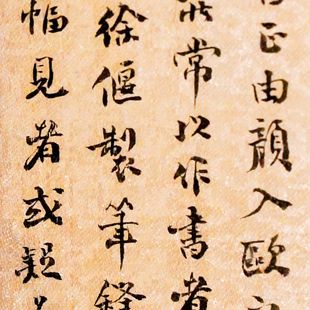 正由顏入歐
常以作書者
徐偃製筆
幅見者或疑